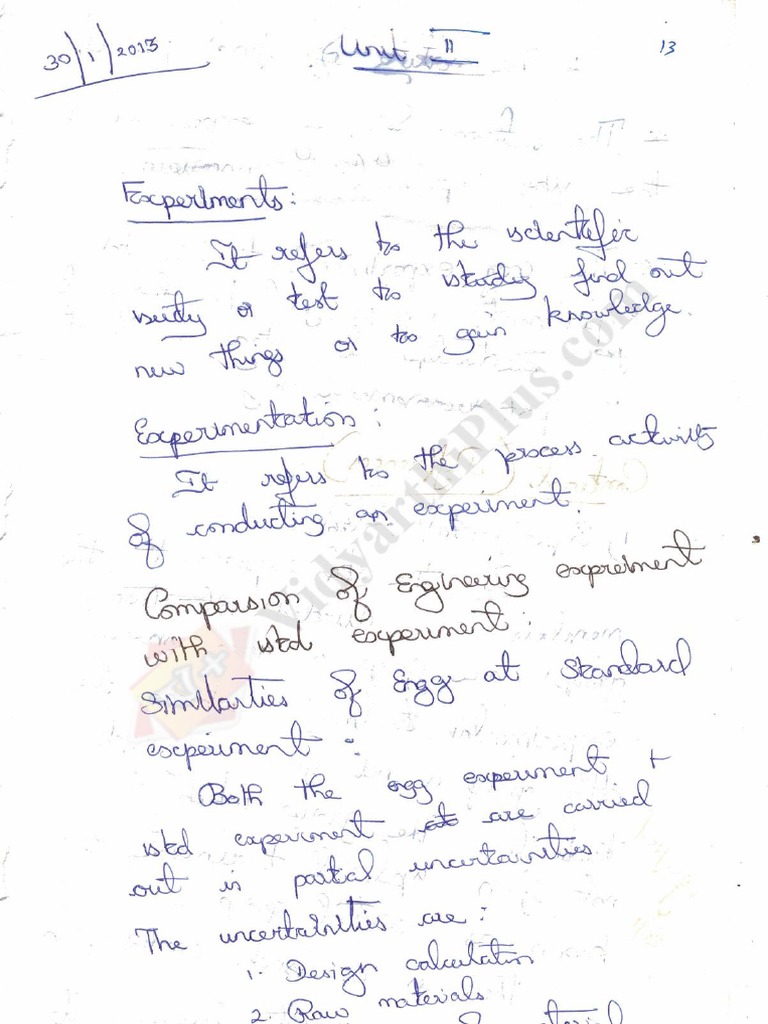 30/1/2013
Unit II
13
Experiments:
It refers to the scientific
study or test to study find out
new things or to gain knowledge.
Experimentation:
It refers to the process activity
of conducting an experiment.
Comparsion of Engineering expreiment
with std experiment:
Similarties of Engg at Standard
experiment:
Both the egg experiment +
std experiment are carried
out in partial uncertainities
The uncertainities are:
1. Design calculation
2. Raw materials
of material
VidyarthiPlus.com